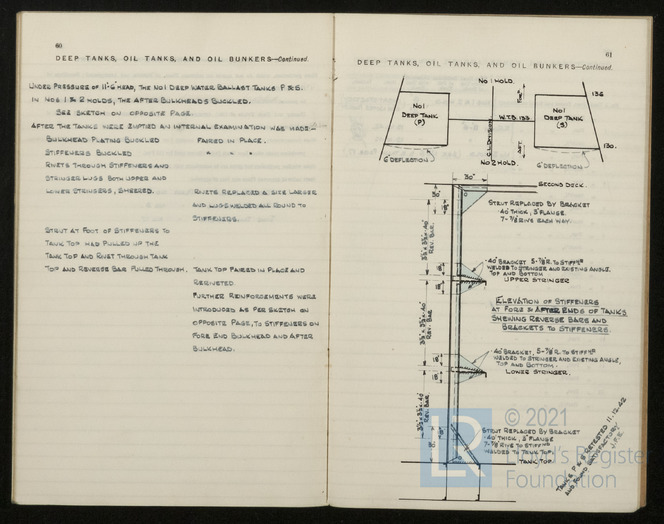 60
DEEP TANKS, OIL TANKS, AND OIL BUNKERS—Continued.
UNDER PRESSURE OF 11'-6" HEAD, THE NO1 DEEP WATER BALLAST TANKS P & S.
IN NOS 1 & 2 HOLDS, THE AFTER BULKHEADS BUCKLED.
SEE SKETCH ON OPPOSITE PAGE.
AFTER THE TANKS WERE EMPTIED AN INTERNAL EXAMINATION WAS MADE:-
BULKHEAD PLATING BUCKLED FAIRED IN PLACE.
STIFFENERS BUCKLED " " "
RIVETS THROUGH STIFFENERS AND
STRINGER LUGS BOTH UPPER AND
LOWER STRINGERS, SHEERED. RIVETS REPLACED A SIZE LARGER
AND LUGS WELDED ALL ROUND TO
STIFFENERS.
STRUT AT FOOT OF STIFFENERS TO
TANK TOP HAD PULLED UP THE
TANK TOP AND RIVET THROUGH TANK
TOP AND REVERSE BAR PULLED THROUGH. TANK TOP FAIRED IN PLACE AND
RERIVETED.
FURTHER REINFORCEMENTS WERE
INTRODUCED AS PER SKETCH ON
OPPOSITE PAGE, TO STIFFENERS ON
FORE END BULKHEAD AND AFTER
BULKHEAD.
61
DEEP TANKS, OIL TANKS, AND OIL BUNKERS—Continued.
NO 1 HOLD.
FOR'D
136
NO1
DEEP TANK
(P)
W.T.B. 133
NO1
DEEP TANK
(S)
C.L. DIVISION
AFT.
130.
6" DEFLECTION
NO 2 HOLD.
6" DEFLECTION
30"
SECOND DECK.
30"
STRUT REPLACED BY BRACKET
.40 THICK, 3" FLANGE
7-7/8 RIVS EACH WAY.
3½ x 3½ x .40"
REV. BAR.
.40" BRACKET 5-7/8 R. TO STIFFR
WELDED TO STRINGER AND EXISTING ANGLE.
TOP AND BOTTOM
UPPER STRINGER
18"
18"
ELEVATION OF STIFFENERS
AT FORE & AFTER ENDS OF TANKS
SHEWING REVERSE BARS AND
BRACKETS TO STIFFENERS.
3½ x 3½ x .40"
REV. BAR.
.40" BRACKET, 5-7/8 R. TO STIFFR
WELDED TO STRINGER AND EXISTING ANGLE,
TOP AND BOTTOM.
LOWER STRINGER.
18"
18"
3½ x 3½ x .40
REV. BAR.
STRUT REPLACED BY BRACKET
.40 THICK, 3" FLANGE
7-7/8 RIVS TO STIFFRS
WELDED TO TANK TOP.
30"
TANK TOP
TANKS P & S RETESTED 11.12.42
AND FOUND SATISFACTORY
J.F.R.
LR
© 2021
Lloyd's Register
Foundation